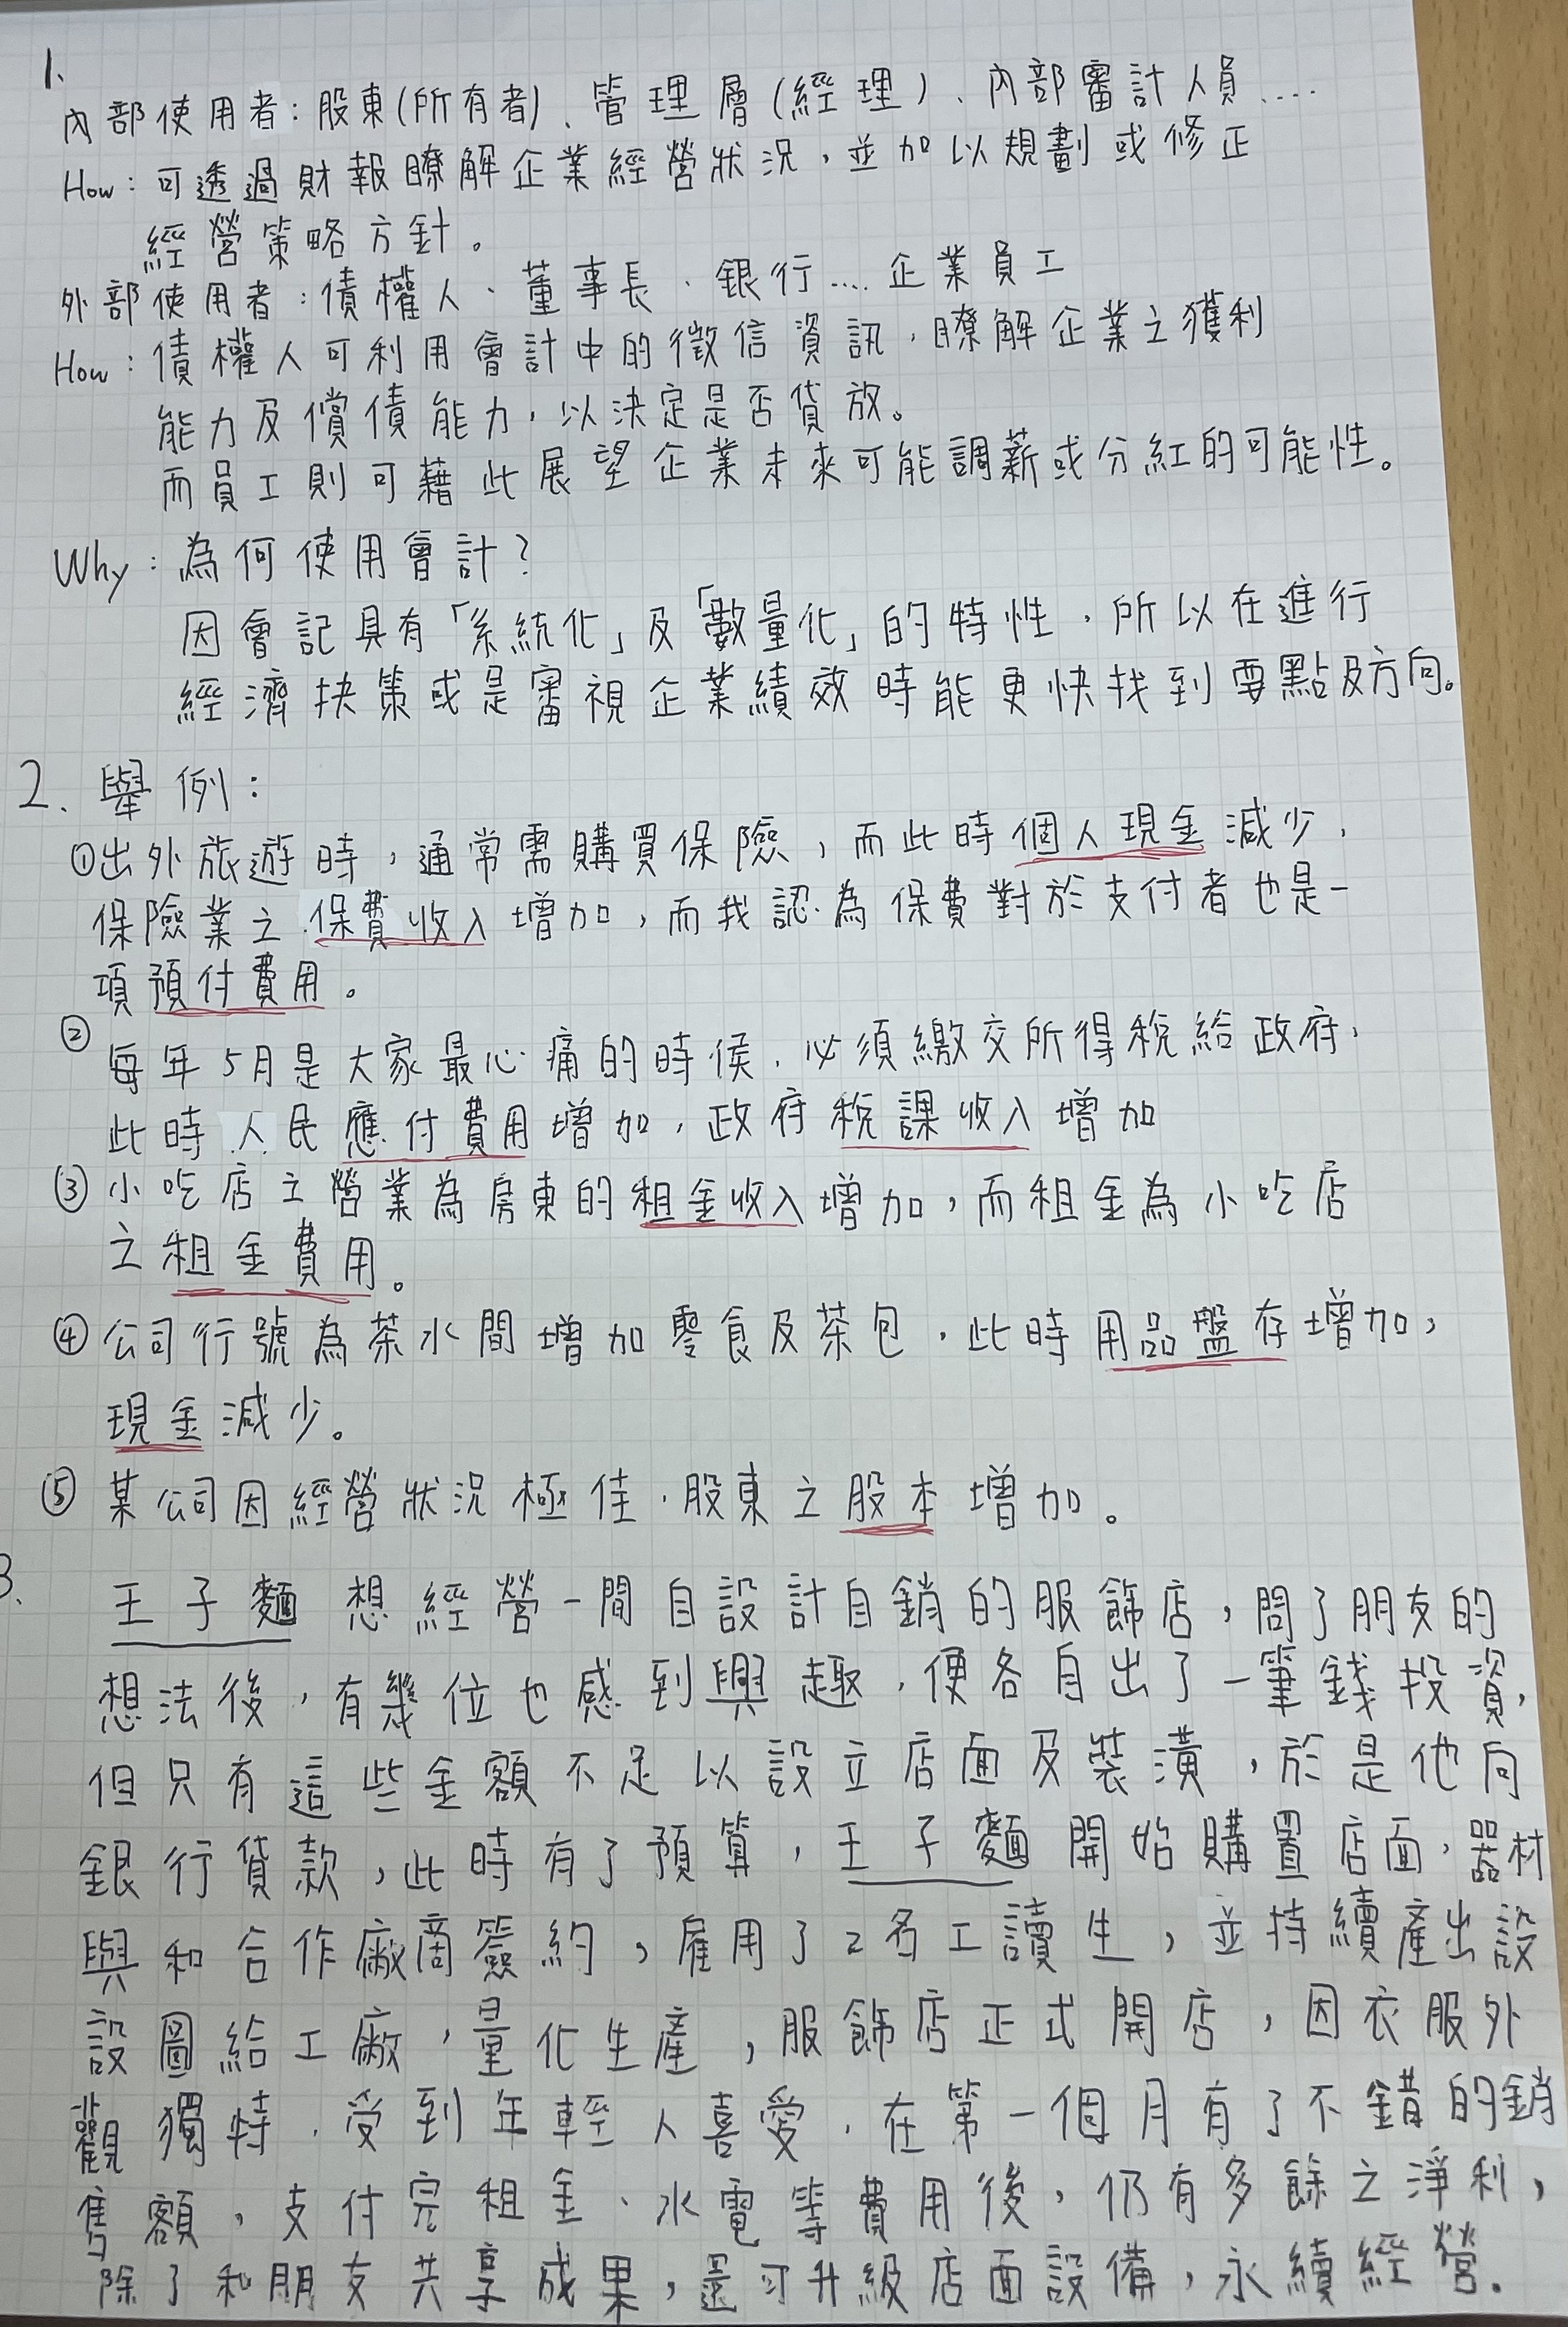 1.
內部使用者：股東(所有者)、管理層(經理)、內部審計人員....
How：可透過財報瞭解企業經營狀況，並加以規劃或修正
經營策略方針。
外部使用者：債權人、董事長、銀行....企業員工
How：債權人可利用會計中的徵信資訊，瞭解企業之獲利
能力及償債能力，以決定是否貸放。
而員工則可藉此展望企業未來可能調薪或分紅的可能性。
Why：為何使用會計?
因會記具有「系統化」及「數量化」的特性，所以在進行
經濟抉策或是審視企業績效時能更快找到要點及方向。
2. 舉例：
①出外旅遊時，通常需購買保險，而此時個人現金減少，
保險業之保費收入增加，而我認為保費對於支付者也是一
項預付費用。
② 每年5月是大家最心痛的時侯，必須繳交所得稅給政府，
此時人民應付費用增加，政府稅課收入增加
③ 小吃店之營業為房東的租金收入增加，而租金為小吃店
之租金費用。
④ 公司行號為茶水間增加零食及茶包，此時用品盤存增加，
現金減少。
⑤ 某公司因經營狀況極佳，股東之股本增加。
3.
王子麵想經營一間自設計自銷的服飾店，問了朋友的
想法後，有幾位也感到興趣，便各自出了一筆錢投資，
但只有這些金額不足以設立店面及裝潢，於是他向
銀行貸款，此時有了預算，王子麵開始購置店面，器材
與和合作廠商簽約，雇用了2名工讀生，並持續產出設
設圖給工廠，量化生產，服飾店正式開店，因衣服外
觀獨特，受到年輕人喜愛，在第一個月有了不錯的銷
售額，支付完租金、水電等費用後，仍有多餘之淨利，
除了和朋友共享成果，還可升級店面設備，永續經營。